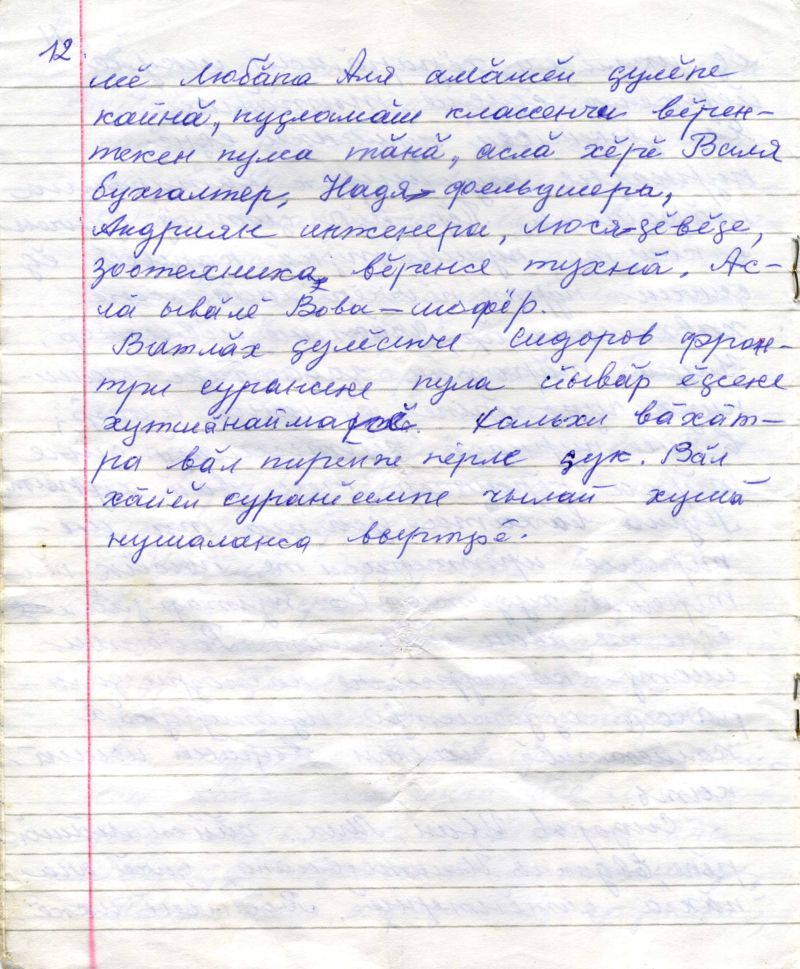 12
шĕ Любăпа Аля амăшĕн çулĕпе
кайнă, пуçламăш классенче вĕрен-
текен пулса тăнă, аслă хĕрĕ Валя
бухгалтер, Надя фельдшера,
Андриян инженера, Люся-çĕвĕçе,
зоотехника вĕренсе тухнă. Ас-
лă ывăлĕ Вова - шофёр.
Вăтлăх çулĕсенче Сидоров фрон-
три сурансене пула йывăр ĕçсене
хутшăнаймарĕ. Хальхи вăхăт-
ра вăл пиренпе пĕрле çук. Вăл
хăйĕн суранĕсемпе чылай хушă
нушаланса выртрĕ.